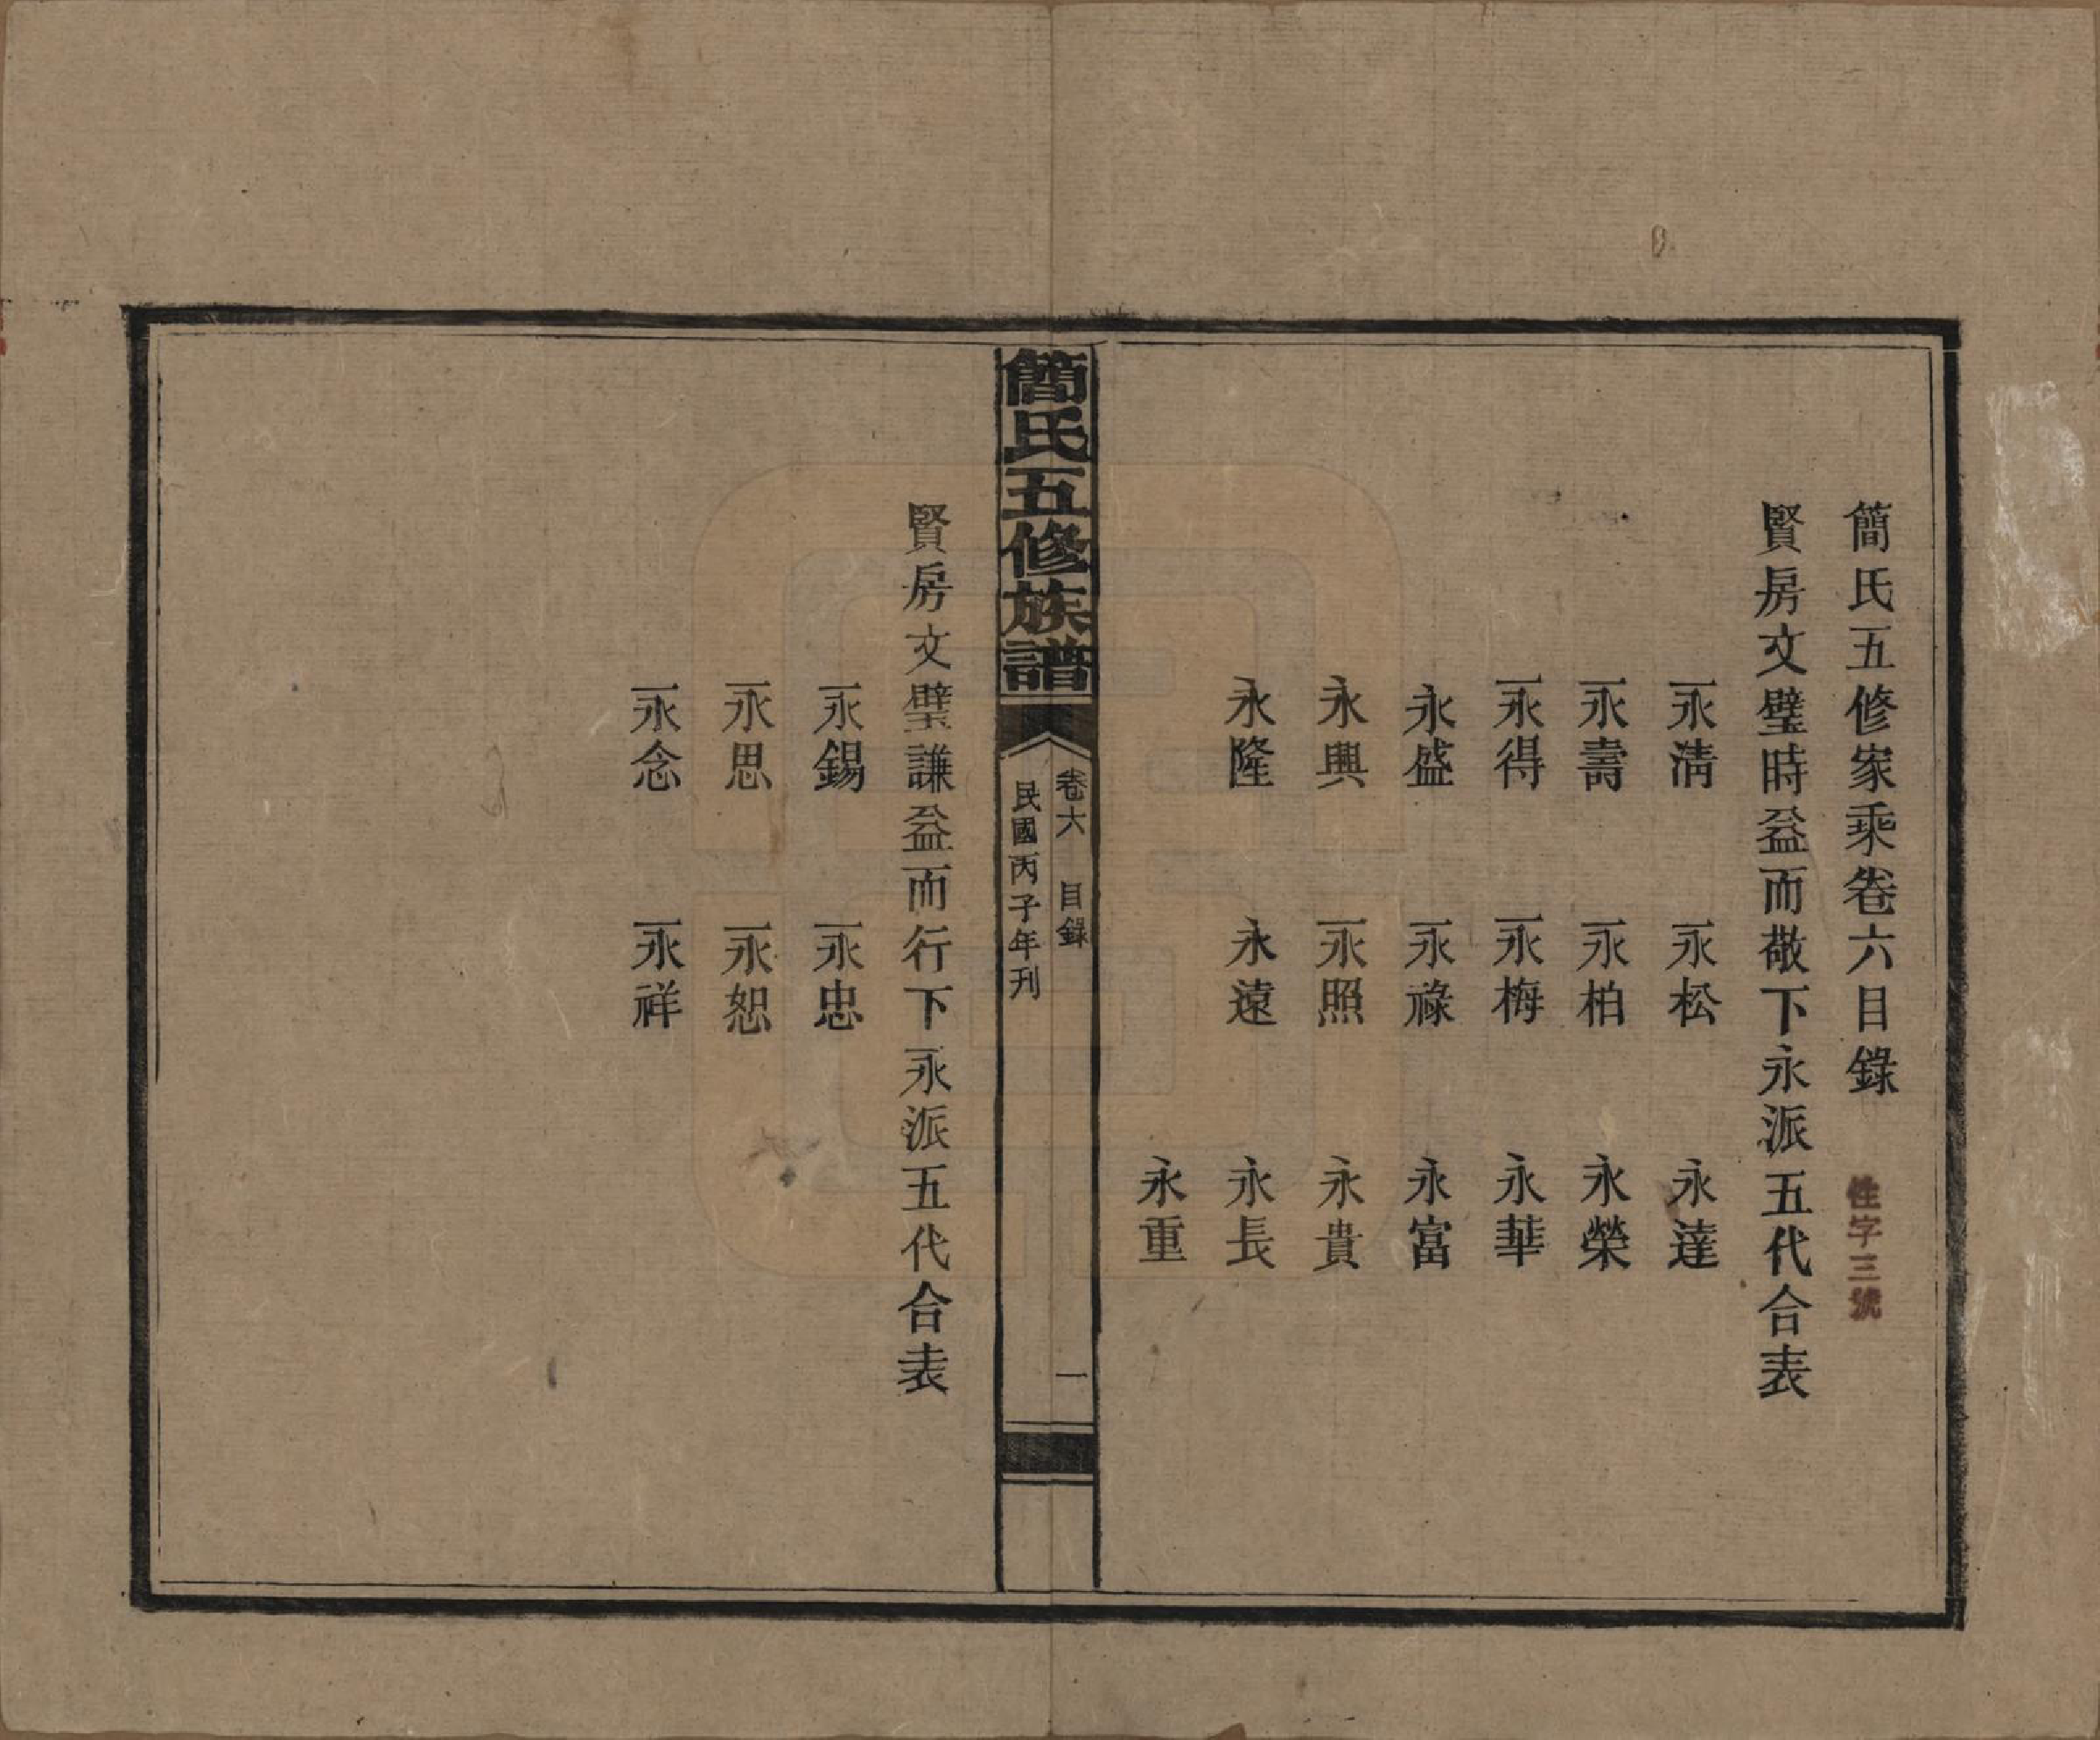 簡氏五修家乘卷六目錄
性字三號
賢房文璧時益而敬下永派五代合表
永淸　永松　永達
永壽　永柏　永榮
永得　永梅　永華
永盛　永祿　永富
永興　永照　永貴
永隆　永遠　永長
永重
簡氏五修族譜
卷六　目錄　一
民國丙子年刋
賢房文璧謙益而行下永派五代合表
永錫　永忠
永思　永恕
永念　永祥